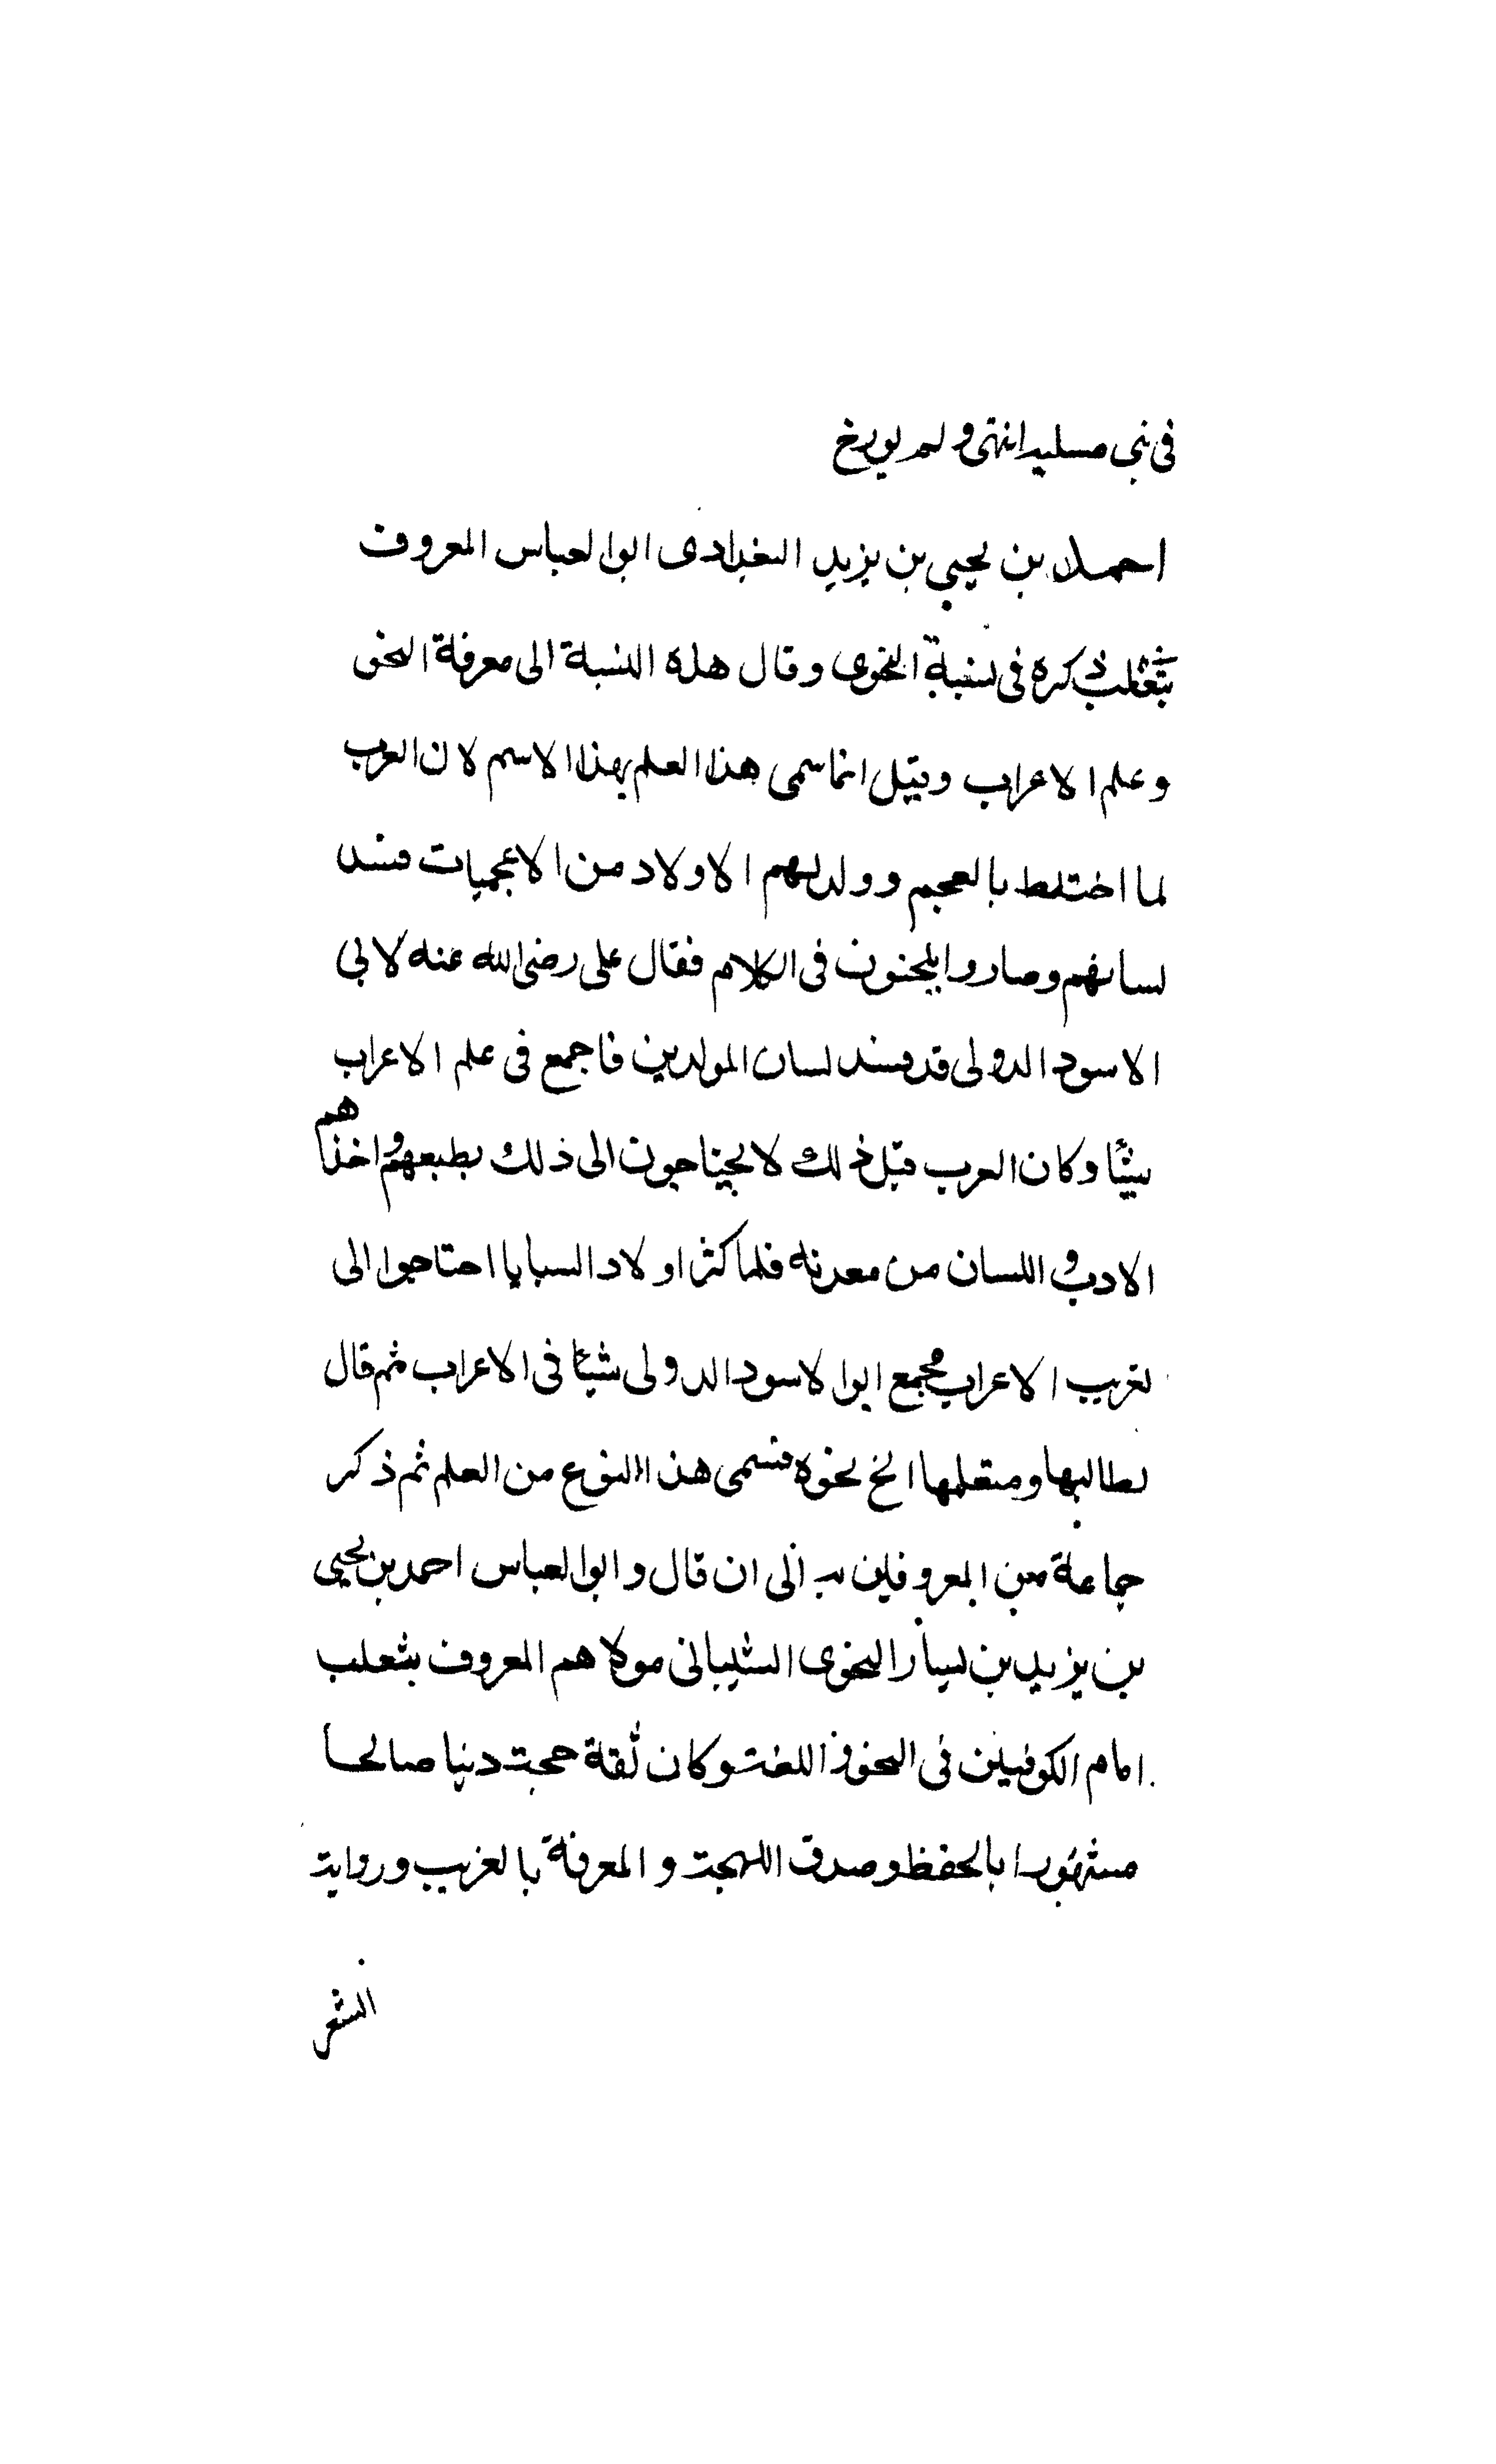 فى بنى مسلية انتهى ولم يورخ
احمد بن يحيى بن يزيد البغدادى ابو العباس المعروف
بثعلب ذكره فى نسبة النحوى وقال هذه النسبة الى معرفة النحو
وعلم الاعراب وقيل انما سمى هذا العلم بهذا الاسم لان العرب
لما اختلط بالعجم وولد لهم الاولاد من الاعجميات فسد
لسانهم وصاروا يلحنون فى الكلام فقال على رضى الله عنه لابى
الاسود الدولى قد فسد لسان المولدين فاجمع فى علم الاعراب
شيئا وكان العرب قبل ذلك لا يحتاجون الى ذلك بطبعهم واخذهم
الادب واللسان من معدنه فلما كثر اولاد السبايا احتاجوا الى
تعريب الاعراب فجمع ابو الاسود الدولى شيئا فى الاعراب ثم قال
لطالبها ومتعلمها انح نحوه فسمى هذا النوع من العلم ثم ذكر
جماعة من المعروفين به الى ان قال وابو العباس احمد بن يحيى
بن يزيد بن سيار النحوى الشيبانى مولاهم المعروف بثعلب
امام الكوفيين فى النحو واللغة وكان ثقة حجة دينا صالحا
مشهورا بالحفظ وصدق اللهجة والمعرفة بالغريب ورواية
الشعر